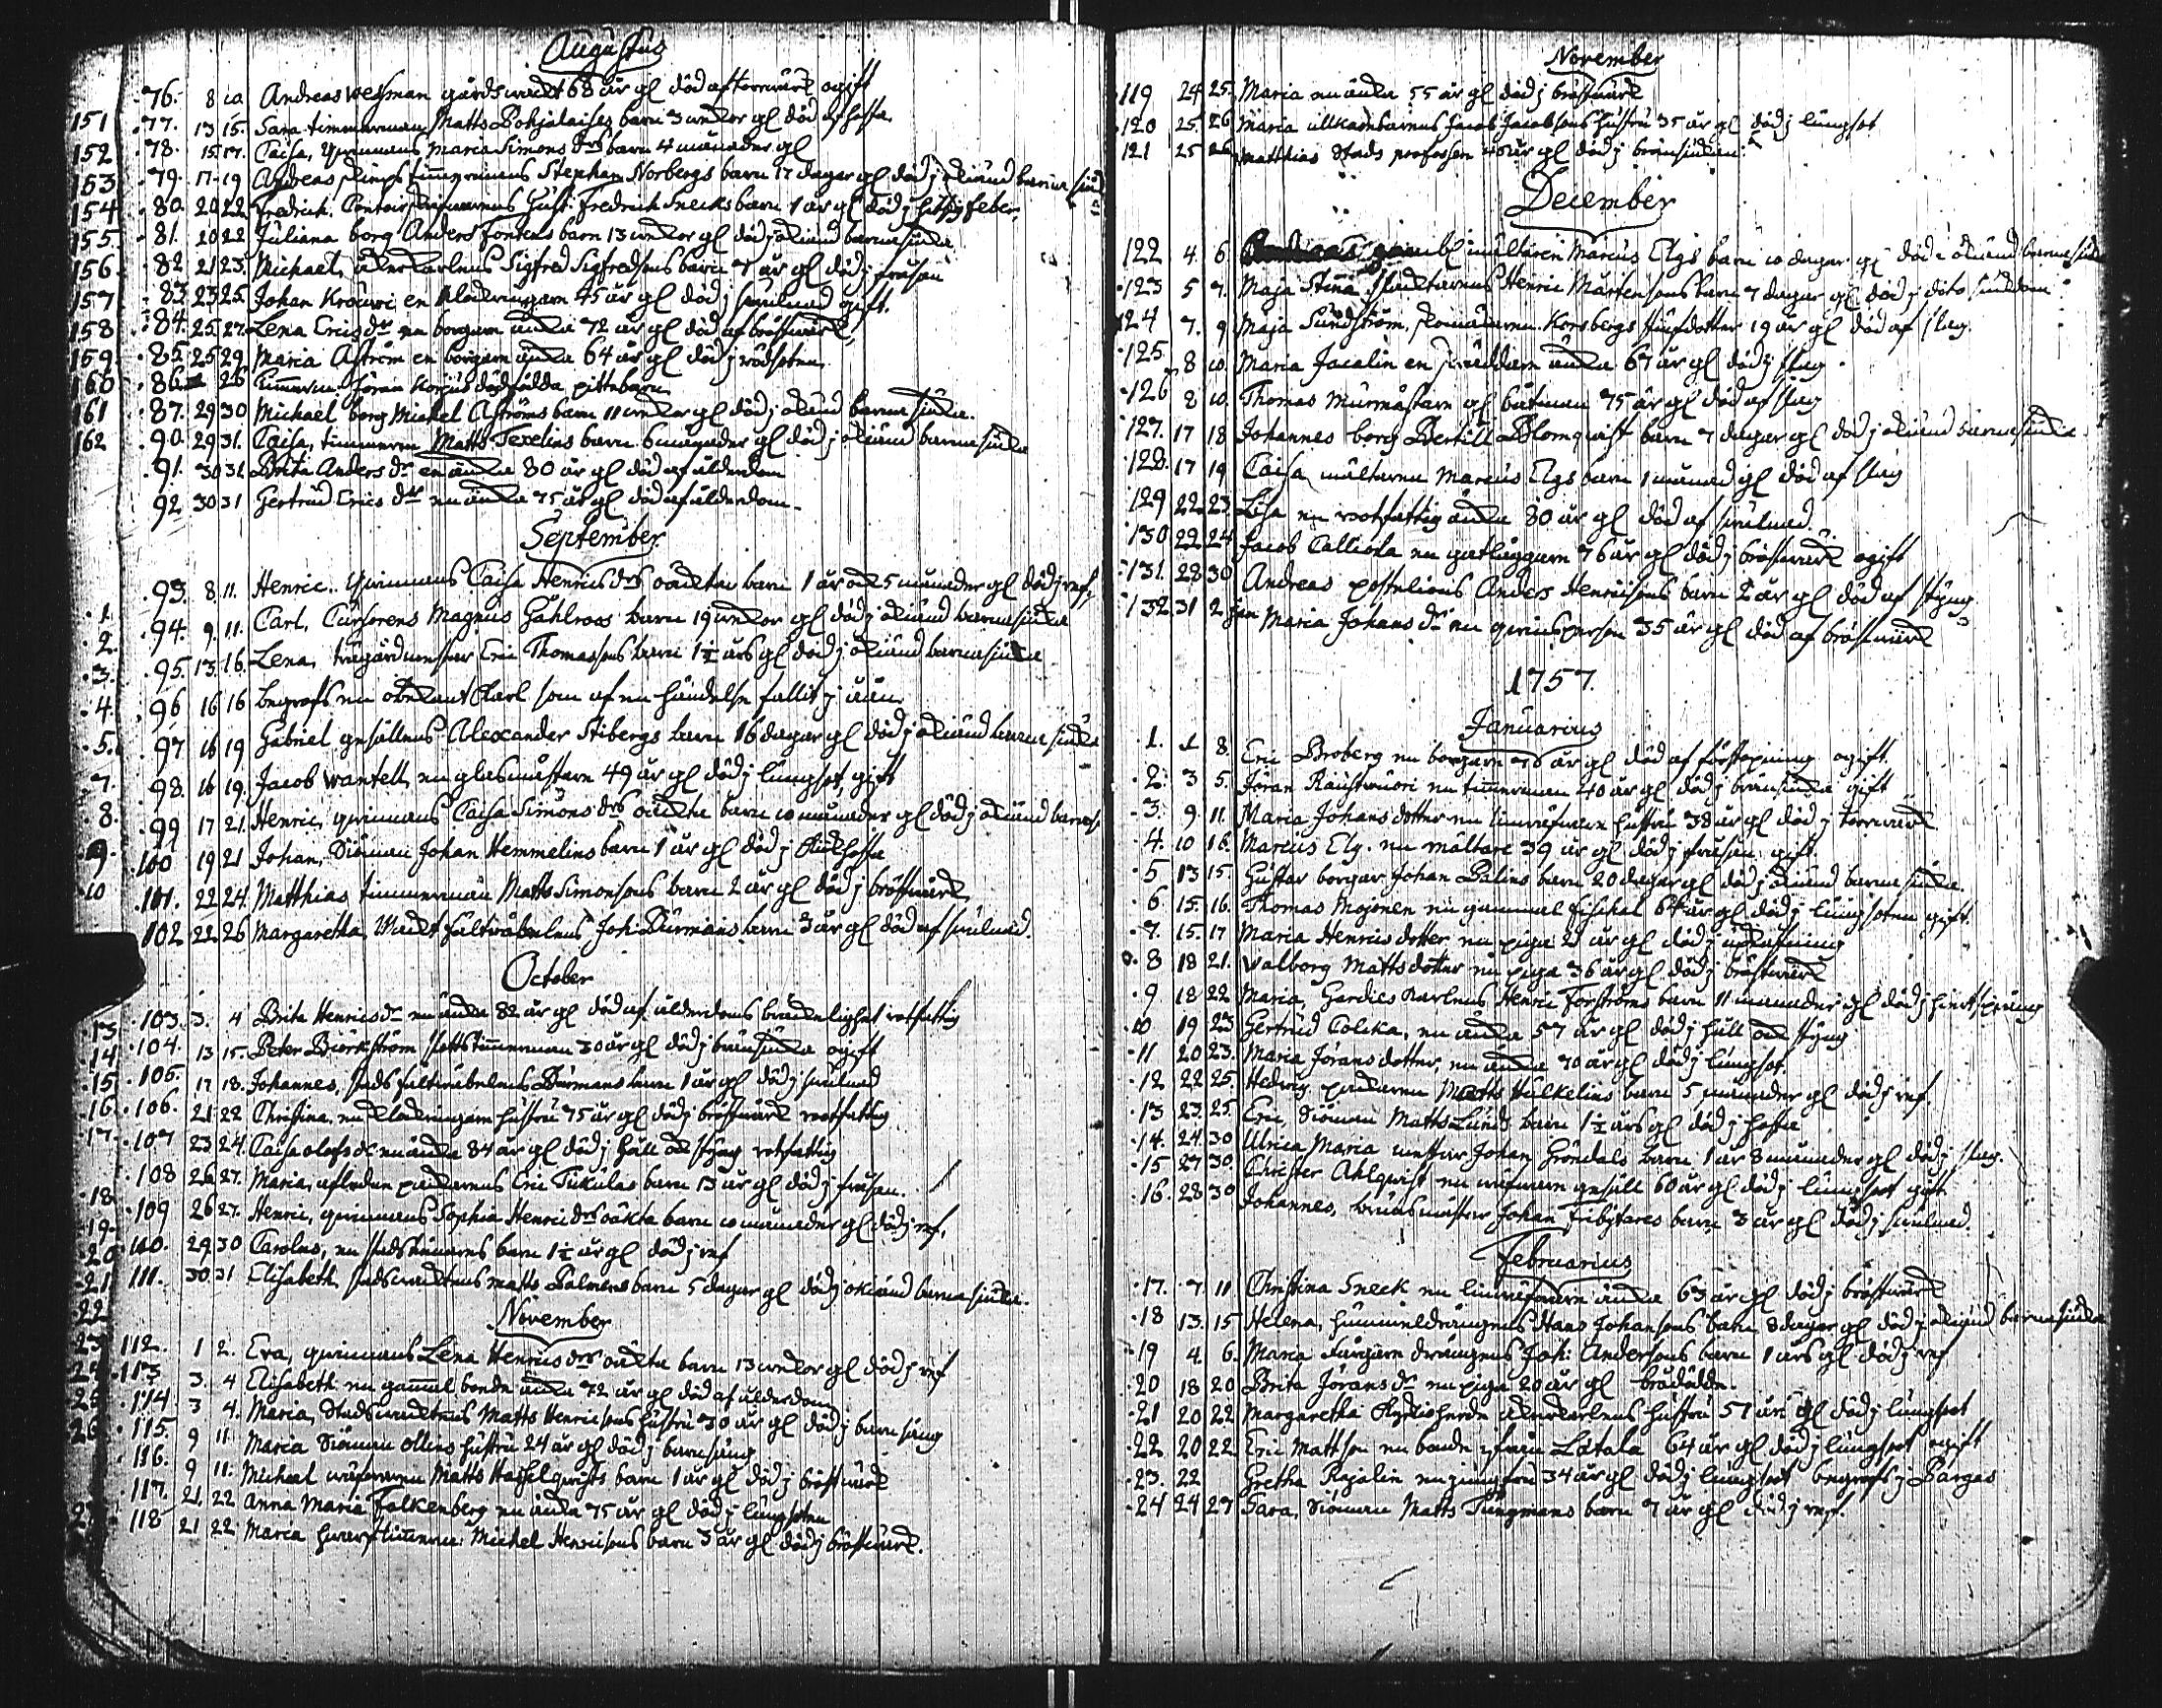 Augustus
76. 8 10 Andreas Wessman gårdswackt 68 år gl död af torrwärk ogift
151 77. 13 15. Sara timmerman Matts Pohjalaises barn 3 weckor gl död af hosta
152 78. 15 17. Caisa, qwinnans Maria Simons drs barn 4 månader gl
153 79. 17 19 Andreas timmermans Stephan Norbergs barn 17 dagar gl död j okiänd barnasiuk
154 80. 20 22 Fredrich Gust. Fredrich Snecks barn 1 år gl död j hitsig feber,
155. 81. 20 22 Juliana borg Anders barn 13 weckor gl död j okiänd barnasiuka
156 82 21 23. Michael, åkerkarlens Sigfred Sigfredsons barn 7 år gl död j fräsen
157 83 23 25. Johan en klockringare 45 år gl död j gift.
158 84. 25. 27. Lena Erics dr en borgare änka 72 år gl död af bröstwärk
159 85 25 29 Maria Aström en borgare änka 64 år gl död j rödsoten
160 86 26 timmerm. Jöran dödfödda pittebarn
161 87. 29 30 Michael borg Michel Aströms barn 11 weckor gl död j okiänd barnasiuka.
162 90. 29 31. Caisa, timmerm Matts Texelins barn 6 månader gl död j okiänd barnasiuka
91. 30 31. Brita Anders dr en änka 80 år gl död af ålderdom
92 30 31 Gertrud Erics dr en änka 75 år gl död af ålderdom
September
93. 8. 11. Henric. qwinnans Caisa Henrics drs oäckta barn 1 år och 5 månader gl död j ref,
1. 94. 9. 11. Carl, Cursorens Magnus Gahlroos barn 19 weckor gl död j okiänd barnasiuka
2. 95. 13. 16. Lena, trägårdmestar Eric Thomassons barn 1½ års gl död j okiänd barnasiuka
3.
4. 96 16 16 begrofs en obekant karl som af en händelse fallit j åån.
5. 97 16 19 Gabriel gesällens Alexander Stibergs barn 16 dagar gl död j okiänd barnasiuka
7. 98. 16 19. Jacob Wantell, en glasmästare 49 år gl död j lungsot, gift
8. 99 17 21. Henric, qwinnans Caisa Simons drs oäckta barn 10 månader gl död j okiänd barnas.
9. 100 19 21 Johan, Siöman Johan Hemmelins barn 1 år gl död j kikhosta
10 101. 22 24. Matthias timmerman Matts Simonsons barn 2 år gl död j bröstwärk
102 22 26 Margaretha, Joh: Burmans barn 3 år gl död af swulnad.
October
13 103. 3. 4 Brita Henrics dr en änka 82 år gl död af ålderdoms bräckelighet rotfattig
14 104. 13 15. Peter Biörkström timmerman 30 år gl död j bränsiuka ogift
15 105. 17 18. Johannes, Burmans barn 1 år gl död j swulnad
16. 106. 21 22 Christina, en klockringare hustru 75 år gl död j bröstwärk rootfattig
17. 107 23 24. Caisa Olofs dr en änka 84 år gl död j håll och styng rotfattig
108 26 27. Maria, afledne packarens Eric Tukulas barn 13 år gl död j fräsen.
18 109 26 27. Henric, qwinnans Sophia Henrics drs oäkta barn 10 månader gl död j ref,
19.
20 110. 29 30 Carolus, en barn 1½ år gl död j ref
21 111. 30 31 Elisabeth stadswacktens Matts Palmens barn 5 dagar gl död j okiänd barnasiuka.
22 November
23 112. 1 2. Eva, qwinnans Lena Henrics drs oäckta barn 13 weckor gl död j ref
24 113 3 4 Elisabeth en gammal bonde änka 72 år gl död af ålderdom
25 114 3 4. Maria, Stadswacktens Matts Henricsons hustru 30 år gl död j barnsäng
26 115. 9 11. Maria Siöman Ollins hustru 24 år gl död j barnsäng
116. 9 11. Michael Matts Hasselqwists barn 1 år gl död j bröstwärk
117. 21. 22 Anna Maria Falkenberg en änka 75 år gl död j lungsoten
118 21 22 Maria timmerm: Michel Henricsons barn 3 år gl död j bröstwärk.
November
119 24 25. Maria en änka 55 år gl död j bröstwärk
120 25. 26 Maria ullkambarens Jacob Jacobsons hustru 35 år gl död j lungsot
121 25 26 Matthias Stads professen 46 år gl död j bränsiukan
December
122 4 6 mältaren Marcus Elgs barn 10 dagar gl död j okiänd barnasiuka
123 5 7. Maja Stina Henric Mårtensons barn 7 dagar gl död j dito siukdom
124 7. 9 Maja Sundström, Korsbergs stiufdotter 19 år gl död af slag.
125. 8 10. Maria Jacalin en skräddare änka 67 år gl död j slag
126 8 10. Thomas Murmästare gl båtsman 75 år gl död af slag
127. 17 18 Johannes borg Bertill Blomqwist barn 7 dagar gl död j okiänd barnasiuka
128. 17 19 Caisa mältarens Marcus Elgs barn 1 månad gl död af slag
129 22 23. Lisa en rootfattig änka 80 år gl död af swulnad.
130 22 24 Jacob Calliola en gatläggare 76 år gl död j bröstwärk ogift
131. 28 30 Andreas postilions Anders Henricsons barn 2 år gl död af styng
132. 31 2 Jan Maria Johans dr en qwinsperson 35 år gl död af bröstwärk
1757.
Januarius
1. 1 8. Eric Broberg en borgare 76 år gl död af förstopning ogift.
2. 3 5. Jöran Rautwuori en timmerman 40 år gl död j bränsiuka gift
3. 9 11. Maria Johans dotter en linwäfware hustru 38 år gl död j torrwärk
4. 10 16. Marcus Elg. en mältare 39 år gl död j fräsen gift.
5 13 15. Gustav borgar Johan Palins barn 20 dagar gl död j okiänd barnasiuka.
6 15. 16. Thomas Mojonen en gammal fischal 64 år gl död j lungsoten gift.
7. 15. 17 Maria Henrics dotter en piga 21 år gl död j
8 18 21. Walborg Matts dotter en piga 36 år gl död j bröstwärk
9 18 22 Maria, Gardies karlens Henric Forströms barn 11 månader gl död j
10 19 23 Gertrud Colcka, en änka 57 år gl död j håll och styng
11 20 23. Maria Jörans dotter, en änka 70 år gl död j lungsot.
12 22 25. Hedwig packaren Matts Hulkelins barn 5 månader gl död j ref.
13 23. 25. Eric, Siöman Matts Lunds barn 1½ års gl död j hosta
14. 24. 30 Ulrica Maria mestar Johan Gröndals barn 1 år 8 månader gl död j slag.
15 27 30. Christer Ahlqwist en gesäll 60 år gl död j lungsoot gift
16. 28 30 Johannes, Johan barn 3 år gl död j swulnad.
Februarius
17. 7 11 Christina Sneck en linwäfware änka 63 år gl död j bröstwärk
18 13. 15 Helena, Hans Johansons barn 8 dagar gl död j okiänd barnasiuka
19 4. 6. Maria drängens Joh: Andersons barn 1 års gl död j ref
20 18 20 Brita Jörans dr en piga 20 år gl brådödde.
21 20 22 Margaretha åkerkarlens hustru 57 år gl död j lungsoot
22 20 22 Eric Mattson en bonde ifrån Lätala 64 år gl död j lungsoot ogift
23. 22 Gretha Rajalin en jungfru 34 år gl död j lungsoot begrofs j Pargas
24 24 27 Sara, Siöman Matts Tungmans barn 7 år gl död j ref.